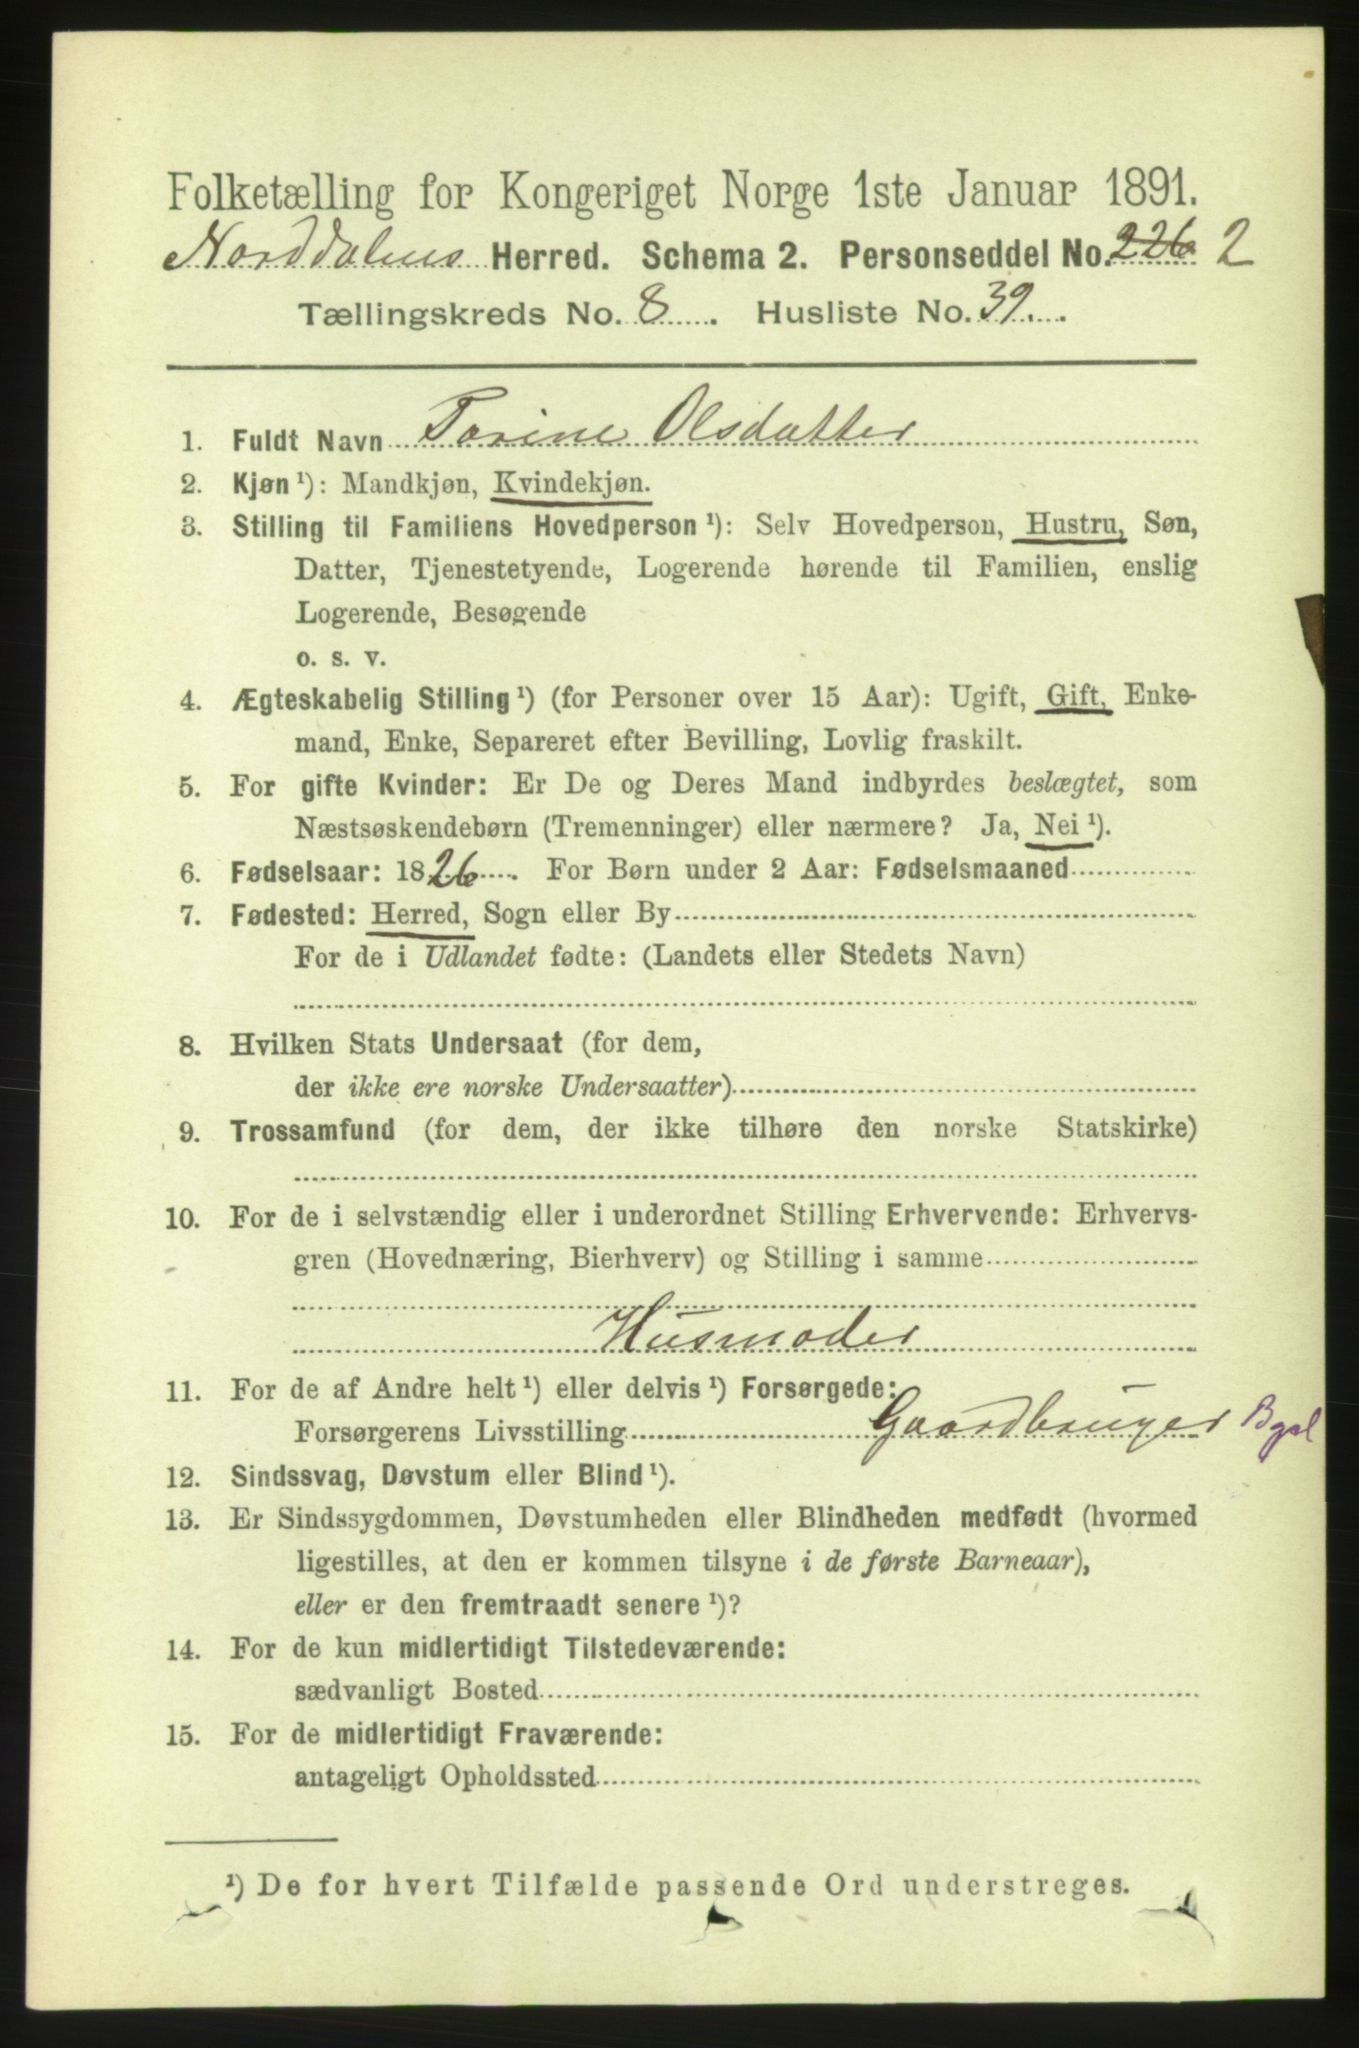 Folketælling for Kongeriget Norge 1ste Januar 1891.
Norddalens Herred. Schema 2. Personseddel No. 226 2
Tællingskreds No. 8. Husliste No. 39.
1. Fuldt Navn Torine Olsdatter
2. Kjøn ¹): Mandkjøn, Kvindekjøn.
3. Stilling til Familiens Hovedperson ¹): Selv Hovedperson, Hustru, Søn,
Datter, Tjenestetyende, Logerende hørende til Familien, enslig
Logerende, Besøgende
o. s. v.
4. Ægteskabelig Stilling ¹) (for Personer over 15 Aar): Ugift, Gift, Enke-
mand, Enke, Separeret efter Bevilling, Lovlig fraskilt.
5. For gifte Kvinder: Er De og Deres Mand indbyrdes beslægtet, som
Næstsøskendebørn (Tremenninger) eller nærmere? Ja, Nei ¹).
6. Fødselsaar: 1826. For Børn under 2 Aar: Fødselsmaaned
7. Fødested: Herred, Sogn eller By
For de i Udlandet fødte: (Landets eller Stedets Navn)
8. Hvilken Stats Undersaat (for dem,
der ikke ere norske Undersaatter)
9. Trossamfund (for dem, der ikke tilhøre den norske Statskirke)
10. For de i selvstændig eller i underordnet Stilling Erhvervende: Erhvervs-
gren (Hovednæring, Bierhverv) og Stilling i samme
Husmoder
11. For de af Andre helt ¹) eller delvis ¹) Forsørgede:
Forsørgerens Livsstilling Gaardbruger Bgsl
12. Sindssvag, Døvstum eller Blind ¹).
13. Er Sindssygdommen, Døvstumheden eller Blindheden medfødt (hvormed
ligestilles, at den er kommen tilsyne i de første Barneaar),
eller er den fremtraadt senere ¹)?
14. For de kun midlertidigt Tilstedeværende:
sædvanligt Bosted
15. For de midlertidigt Fraværende:
antageligt Opholdssted
¹) De for hvert Tilfælde passende Ord understreges.